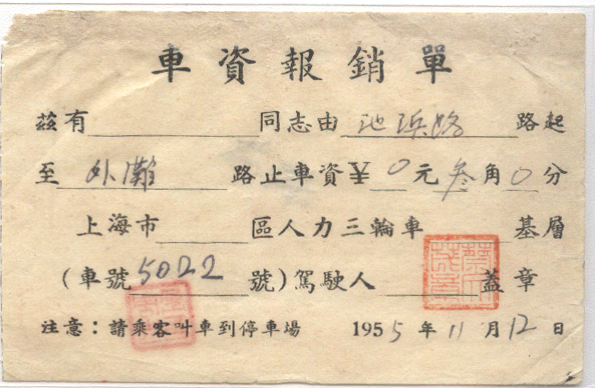 車資報銷單
茲有 同志由 池浜路 路起
至 外灘 路止車資￥0元叁角0分
上海市 區人力三輪車 基層
(車號 5022 號)駕駛人 蓋章
注意：請乘客叫車到停車場 1955年11月12日